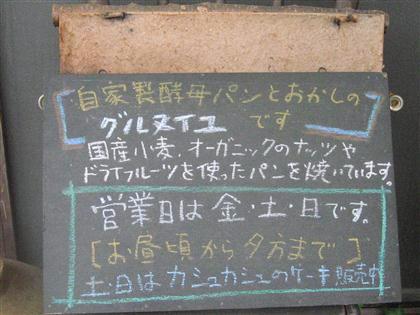 自家製酵母パンとおかしの
グルヌイユ です
国産小麦、オーガニックのナッツや
ドライフルーツを使ったパンを焼いています。
営業日は金・土・日です。
[お昼頃から夕方まで]
土・日はカシュカシュのケーキ販売中